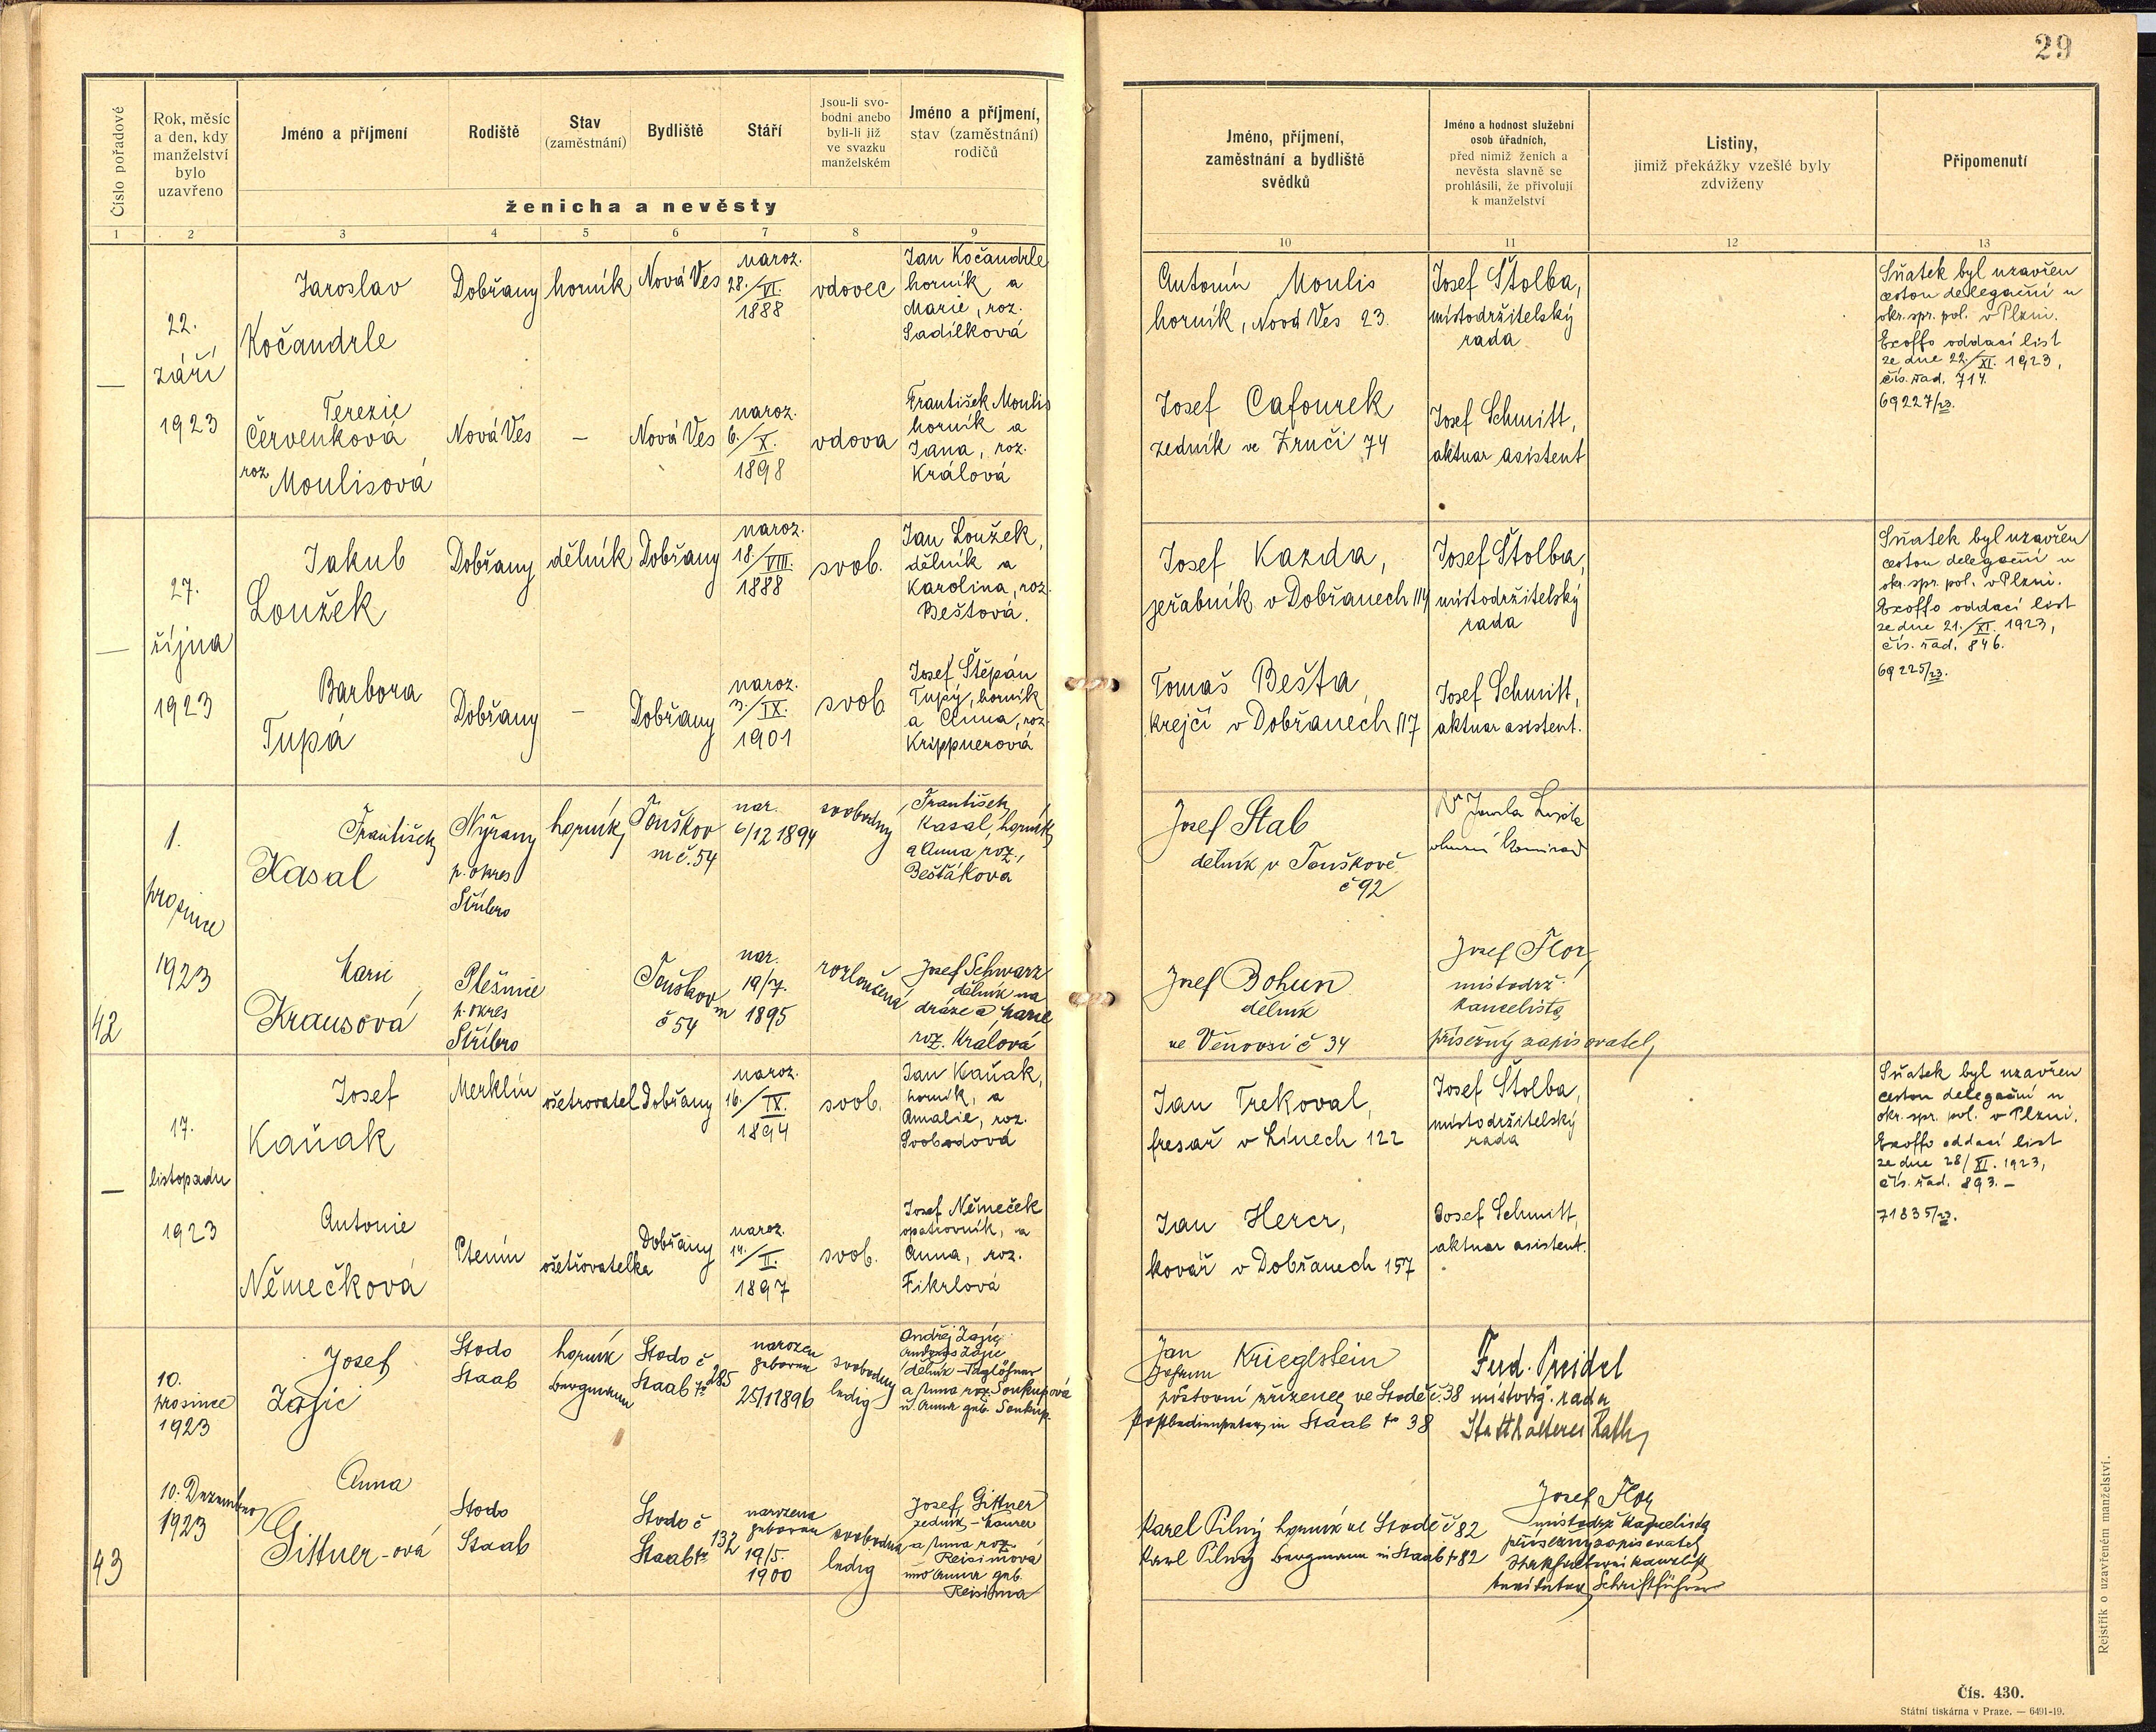 29
Číslo pořadové
Rok, měsíc
a den, kdy
manželství
bylo
uzavřeno
Jméno a příjmení
Rodiště
Stav
(zaměstnání)
Bydliště
Stáří
Jsou-li svo-
bodni anebo
byli-li již
ve svazku
manželském
Jméno a příjmení,
stav (zaměstnání)
rodičů
ženicha a nevěsty
Jméno, příjmení,
zaměstnání a bydliště
svědků
Jméno a hodnost služební
osob úřadních,
před nimiž ženich a
nevěsta slavně se
prohlásili, že přivolují
k manželství
Listiny,
jimiž překážky vzešlé byly
zdviženy
Připomenutí
1 2 3 4 5 6 7 8 9 10 11 12 13
—
22.
září
1923
Jaroslav
Kočandrle
Dobřany
horník
Nová Ves
naroz.
28./VI.
1888
vdovec
Jan Kočandrle
horník a
Marie, roz.
Sadílková
Terezie
Červenková
roz. Moulisová
Nová Ves
—
Nová Ves
naroz.
6./X.
1898
vdova
František Moulis
horník a
Jana, roz.
Králová
Antonín Moulis
horník, Nová Ves 23.
Josef Cafourek
zedník ve Zruči 74
Josef Štolba,
místodržitelský
rada
Josef Schmitt,
aktuar asistent
Sňatek byl uzavřen
cestou delegační u
okr. spr. pol. v Plzni.
Exoffo oddací list
ze dne 22./XI. 1923,
čís. řad. 714.
69227/23.
—
27.
října
1923
Jakub
Loužek
Dobřany
dělník
Dobřany
naroz.
18./VIII.
1888
svob.
Jan Loužek,
dělník a
Karolina, roz.
Beštová.
Barbora
Tupá
Dobřany
—
Dobřany
naroz.
3./IX.
1901
svob.
Josef Štěpán
Tupý, horník
a Anna, roz.
Krippnerová
Josef Kazda,
jeřabník v Dobřanech 114
Tomaš Bešta,
krejčí v Dobřanech 117
Josef Štolba,
místodržitelský
rada
Josef Schmitt,
aktuar asistent.
Sňatek byl uzavřen
cestou delegační u
okr. spr. pol. v Plzni.
Exoffo oddací list
ze dne 21./XI. 1923,
čís. řad. 846.
69225/23.
42
1.
prosince
1923
František
Kasal
Nýřany
p. okres
Stříbro
horník
Touškov
m č. 54
nar.
6/12 1894
svobodný
František
Kasal, horník
a Anna roz.
Beštáková
Marie
Krausová
Plešnice
p. okres
Stříbro
Touškov
m
č 54
nar.
19/7.
1895
rozloučená
Josef Schwarz
dělník na
dráze a Marie
roz. Králová
Josef Stab
dělník v Touškově
č 92
Josef Bohun
dělník
ve Věnovsi č 34
Josef Flor
místodrž.
kancelista
přísežný zapisovatel
—
17.
listopadu
1923
Josef
Kaňak
Merklín
ošetrovatel
Dobřany
naroz.
16./IX.
1894
svob.
Jan Kaňak,
horník, a
Amalie, roz.
Svobodová
Antonie
Němečková
Ptenín
ošetřovatelka
Dobřany
naroz.
14./II.
1897
svob.
Josef Němeček
opatrovník, a
Anna, roz.
Fikrlová
Jan Trekoval,
fresař v Línech 122
Jan Hercr,
kovář v Dobřanech 157
Josef Štolba,
místodržitelský
rada
Josef Schmitt,
aktuar asistent.
Sňatek byl uzavřen
cestou delegační u
okr. spr. pol. v Plzni.
Exoffo oddací list
ze dne 28/XI. 1923,
čís. řad. 893. —
71835/23.
43
10.
prosince
1923
10. Dezember
1923
Josef
Zajíc
Stodo
Staab
horník
Bergmann
Stodo č
Staab № 285
narozen
geboren
25/1 1896
svobodný
ledig
Andřej Zajíc
Andreas Zajic
dělník – Taglöhner
a Anna roz. Soukupová
u. Anna geb. Soukup.
Anna
Gittner-ová
Stodo
Staab
Stodo č
Staab № 132
narozena
geboren
19/5.
1900
svobodna
ledig
Josef Gittner
zedník – Maurer
a Anna roz.
Reisimova
und Anna geb.
Reisima
Jan
Johann Krieglstein
poštovní zřízenec ve Stodě č. 38
Postbediensteter in Staab № 38
Karel Pilný horník ve Stodě č 82
Karl Pilný Bergmann in Staab № 82
Ferd. Preidel
místodrž. rada
Statthalterei Rath
Josef Flor
místodrž kancelista
přísežný zapisovatel
Statthalterei kanzlist
beeideter Schriftführer
Rejstřík o uzavřeném manželství.
Čís. 430.
Státní tiskárna v Praze. — 6491-19.